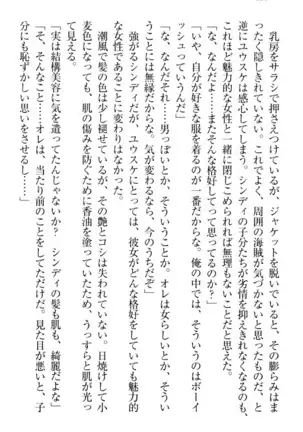 乳房をサラシで押さえつけているが、ジャケットを脱いでいると、その膨らみはま
ったく隠しきれていない。これでよく、周囲の海賊が気づかないと思ったものだ、と
逆にユウスケは感心してしまう。シンディの子分たちが劣情を抑えきれなくなるのも、
これほど魅力的な女性と一緒に閉じこめられれば無理もないことだと思う。
「な、なんだよ……またそんな格好してって思ってるのか?」
「いや、自分が好きな服を着るのが一番だからな。俺の中では、そういうのはボーイ
ッシュっていうんだ」
「な、なんだそれ……男っぽいとか、そういうことか」
強がるシンディだが、ユウスケにとっては、彼女がどんな格好をしていても魅力的
な女性であることに変わりはなかった。
潮風で髪の色は少し褪せているが、その艶とコシは失われていない。日焼けして小
麦色になっても、肌の傷みを防ぐために香油を塗っていたため、うっすらと花の香り
「実は結構美容に気を遣ってたんじゃないか? シンディの髪も肌も、綺麗だよな」
「そ、そんなこと……オレは、当たり前のことをしてただけだ。見た目が悪いと、子
分にも恥ずかしい思いをさせるし……」